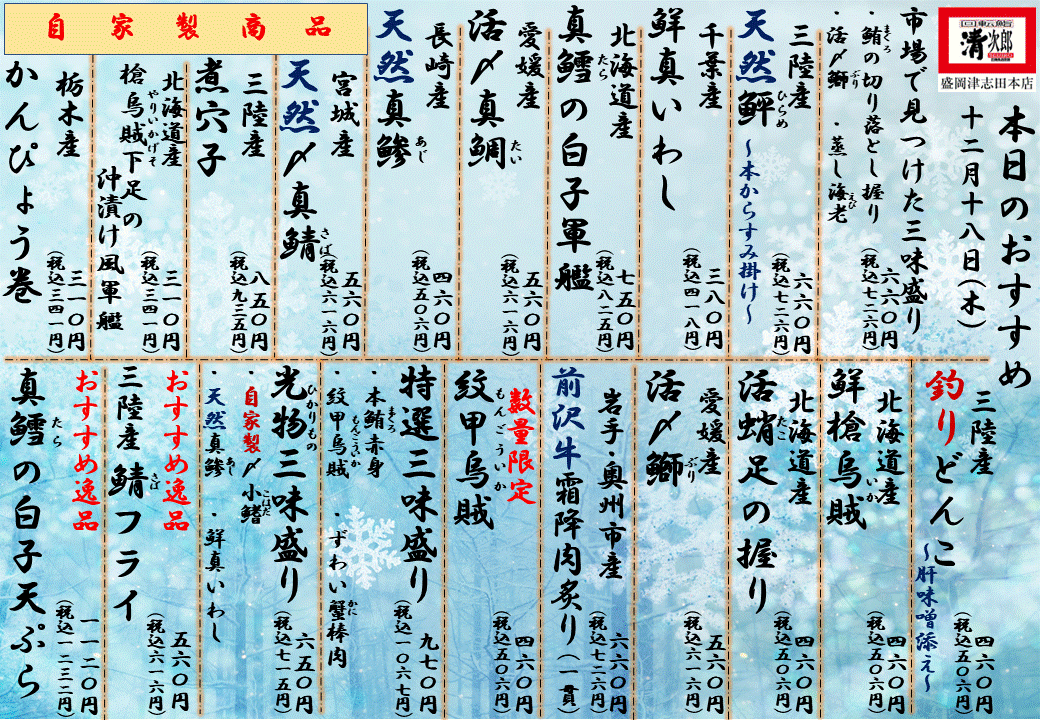 回転鮨
清次郎
盛岡津志田本店
本日のおすすめ
十二月十八日(木)
市場で見つけた三味盛り
・鮪の切り落とし握り
まぐろ
・活〆鰤 ・蒸し海老
ぶり
えび
六六〇円
(税込七二六円)
三陸産
天然鮃
ひらめ
～本からすみ掛け～
六六〇円
(税込七二六円)
千葉産
鮮真いわし
三八〇円
(税込四一八円)
北海道産
真鱈の白子軍艦
たら
七五〇円
(税込八二五円)
愛媛産
活〆真鯛
たい
五六〇円
(税込六一六円)
長崎産
天然真鯵
あじ
四六〇円
(税込五〇六円)
自家製商品
宮城産
天然〆真鯖
さば
五六〇円
(税込六一六円)
三陸産
煮穴子
八五〇円
(税込九三五円)
北海道産
槍烏賊下足の
やりいかげそ
沖漬け風軍艦
三一〇円
(税込三四一円)
栃木産
かんぴょう巻
三一〇円
(税込三四一円)
三陸産
釣りどんこ
～肝味噌添え～
四六〇円
(税込五〇六円)
北海道産
鮮槍烏賊
いか
四六〇円
(税込五〇六円)
北海道産
活蛸足の握り
たこ
四六〇円
(税込五〇六円)
愛媛産
活〆鰤
ぶり
五六〇円
(税込六一六円)
岩手・奥州市産
前沢牛霜降肉炙り(一貫)
六六〇円
(税込七二六円)
数量限定
紋甲烏賊
もんごういか
四六〇円
(税込五〇六円)
特選三味盛り
・本鮪赤身
まぐろ
・紋甲烏賊 ・ずわい蟹棒肉
もんごういか
かに
九七〇円
(税込一〇六七円)
光物三味盛り
ひかりもの
・自家製〆小鰭
こはだ
・天然真鯵 ・鮮真いわし
あじ
六五〇円
(税込七一五円)
おすすめ逸品
三陸産 鯖フライ
さば
五六〇円
(税込六一六円)
おすすめ逸品
真鱈の白子天ぷら
たら
一一二〇円
(税込一二三二円)